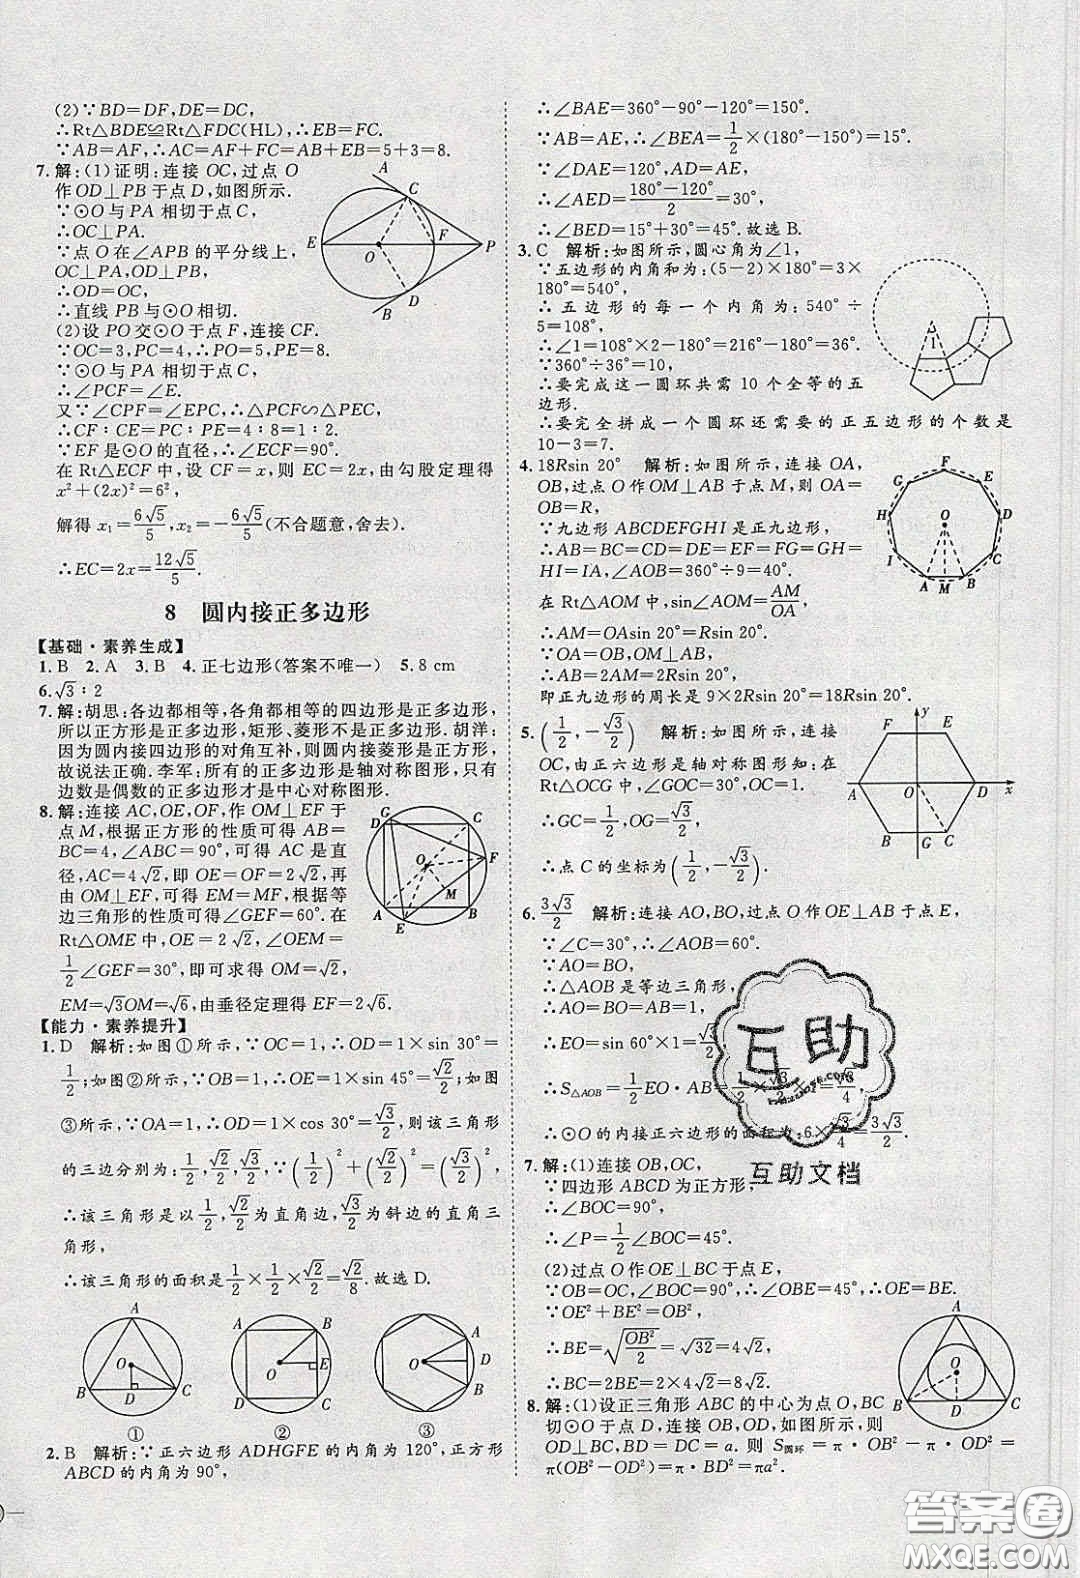 (2)∵BD=DF,DE=DC,
∴Rt△BDE≌Rt△FDC(HL),∴EB=FC.
∵AB=AF,∴AC=AF+FC=AB+EB=5+3=8.
7.解:(1)证明:连接 OC,过点 O
作OD⊥PB于点D,如图所示.
∵⊙O与PA相切于点C,
∴OC⊥PA.
∵点O在∠APB的平分线上,
OC⊥PA,OD⊥PB,
∴OD=OC,
∴直线PB与⊙O相切.
(2)设PO交⊙O于点F,连接CF.
∵OC=3,PC=4,∴PO=5,PE=8.
∵⊙O与PA相切于点C,
∴∠PCF=∠E.
又∵∠CPF=∠EPC,∴△PCF∽△PEC,
∴CF∶CE=PC∶PE=4∶8=1∶2.
∵EF是⊙O的直径,∴∠ECF=90°.
在Rt△ECF中,设CF=x,则EC=2x,由勾股定理得
x²+(2x)²=6²,
解得x₁=6√5/5,x₂=-6√5/5(不合题意,舍去).
∴EC=2x=12√5/5.
A C E O F P D B
8 圆内接正多边形
【基础·素养生成】
1.B 2.A 3.B 4.正七边形(答案不唯一) 5.8 cm
6.√3∶2
7.解:胡思:各边都相等,各角都相等的四边形是正多边形,
所以正方形是正多边形,矩形、菱形不是正多边形.胡洋:
因为圆内接四边形的对角互补,则圆内接菱形是正方形,
故说法正确.李军:所有的正多边形是轴对称图形,只有
边数是偶数的正多边形才是中心对称图形.
8.解:连接AC,OE,OF,作OM⊥EF于
点M,根据正方形的性质可得AB=
BC=4,∠ABC=90°,可得AC是直
径,AC=4√2,即OE=OF=2√2,再
由OM⊥EF,可得EM=MF,根据等
边三角形的性质可得∠GEF=60°.在
Rt△OME中,OE=2√2,∠OEM=
1/2∠GEF=30°,即可求得OM=√2,
EM=√3OM=√6,由垂径定理得EF=2√6.
G D C F O M A E B
【能力·素养提升】
1.D 解析:如图①所示,∵OC=1,∴OD=1×sin 30°=
1/2;如图②所示,∵OB=1,∴OE=1×sin 45°=√2/2;如图
③所示,∵OA=1,∴OD=1×cos 30°=√3/2,则该三角形
的三边分别为:1/2,√2/2,√3/2,∵(1/2)²+(√2/2)²=(√3/2)²,
∴该三角形是以1/2,√2/2为直角边,√3/2为斜边的直角三
角形,
∴该三角形的面积是1/2×1/2×√2/2=√2/8.故选D.
A O B D C ①
A B O E C ②
A O D B ③
2.B 解析:∵正六边形ADHGFE的内角为120°,正方形
ABCD的内角为90°,
∴∠BAE=360°-90°-120°=150°.
∵AB=AE,∴∠BEA=1/2×(180°-150°)=15°.
∵∠DAE=120°,AD=AE,
∴∠AED=(180°-120°)/2=30°,
∴∠BED=15°+30°=45°.故选B.
3.C 解析:如图所示,圆心角为∠1,
∵五边形的内角和为:(5-2)×180°=3×
180°=540°,
∴五边形的每一个内角为:540°÷
5=108°,
∴∠1=108°×2-180°=216°-180°=36°.
∵360°÷36°=10,
∴要完成这一圆环共需10个全等的五
边形.
∴要完全拼成一个圆环还需要的正五边形的个数是
10-3=7.
1
4.18Rsin 20° 解析:如图所示,连接OA,
OB,过点O作OM⊥AB于点M,则OA=
OB=R,
∵九边形ABCDEFGHI是正九边形,
∴AB=BC=CD=DE=EF=FG=GH=
HI=IA,∠AOB=360°÷9=40°.
在Rt△AOM中,sin∠AOM=AM/OA,
∴AM=OAsin 20°=Rsin 20°.
∵OA=OB,OM⊥AB,
∴AB=2AM=2Rsin 20°.
即正九边形的周长是9×2Rsin 20°=18Rsin 20°.
F G E H D O I C A M B
5.(1/2,-√3/2) 解析:如图所示,连接
OC,由正六边形是轴对称图形知:在
Rt△OCG中,∠GOC=30°,OC=1,
∴GC=1/2,OG=√3/2,
∴点C的坐标为(1/2,-√3/2).
y F E A O D x B G C
6.3√3/2 解析:连接AO,BO,过点O作OE⊥AB于点E,
∵∠C=30°,∴∠AOB=60°.
∵AO=BO,
∴△AOB是等边三角形,
∴AO=BO=AB=1,
∴EO=sin 60°×1=√3/2,
∴S△AOB=1/2EO·AB=1/2×√3/2×1=√3/4,
∴⊙O的内接正六边形的面积为:6×√3/4=3√3/2.
7.解:(1)连接OB,OC,
∵四边形ABCD为正方形,
∴∠BOC=90°,
∴∠P=1/2∠BOC=45°.
(2)过点O作OE⊥BC于点E,
∵OB=OC,∠BOC=90°,∴∠OBE=45°,∴OE=BE.
∵OE²+BE²=OB²,
∴BE=√(OB²/2)=√32=4√2,
∴BC=2BE=2×4√2=8√2.
8.解:(1)设正三角形ABC的中心为点O,BC
切⊙O于点D,连接OB,OD,如图所示,则
OD⊥BC,BD=DC=a.则S圆环=π·OB²-π·OD²=
π(OB²-OD²)=π·BD²=πa².
A O B D C
互助
互助文档
答案圈
MXQE.COM